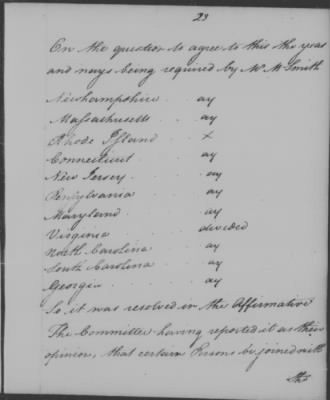 23
On the question to agree to this the yeas
and nays being required by Mr M. Smith
Newhampshire . . ay
Massachusetts . ay
Rhode Island . . x
Connecticut . . ay
New Jersey . . . ay
Pensylvania . . ay
Maryland . . . ay
Virginia divided
North Carolina . ay
South Carolina . ay
Georgia . . ay
So it was resolved in the Affirmative
The Committee having reported it as their
opinion, that certain Persons be joined with
the